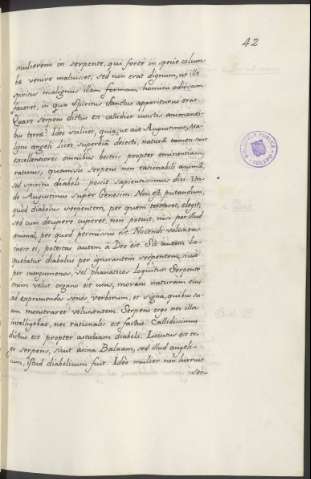 42
mulierem in serpente, qui forte in specie colum
bæ venire maluisset, sed non erat dignum, ut ille
spiritus malignus illam formam homini odiosam
faceret, in qua Spiritus Sanctus appariturus erat.
Quare serpens dictus est callidior cunctis animanti-
bus terræ? Ideo valuit, quia, ut ait Augustinus, Ma-
ligni angeli licet superbia dejecti, natura tamen sunt
excellentiores omnibus bestiis propter eminentiam
rationis, quamvis serpens non rationabili anima,
sed spiritu diaboli possit sapientissimus dici. Un-
de Augustinus super Genesim. Non est putandum,
quod diabolus serpentem, per quem tentaret, elegit,
sed cum decipere cuperet, non potuit, nisi per illud
animal, per quod permissus est. Nocendi voluntas
inest ei, potestas autem a Deo est. Sic autem lo-
cutus diabolus per ignorantem serpentem, sicut
per energumenos, vel phanaticos loquitur. Serpente
enim velut organo est usus, movens naturam ejus
ad exprimendos sonos verborum, et signa, quibus su-
am monstraret voluntatem. Serpens ergo nec illa
intelligebat, nec rationalis est factus. Callidissimus
dictus est propter astutiam diaboli. Locutus est er-
go serpens, sicut asina Balaam, sed illud angeli-
cum, istud diabolicum fuit. Ideo mulier non horruit
ser-